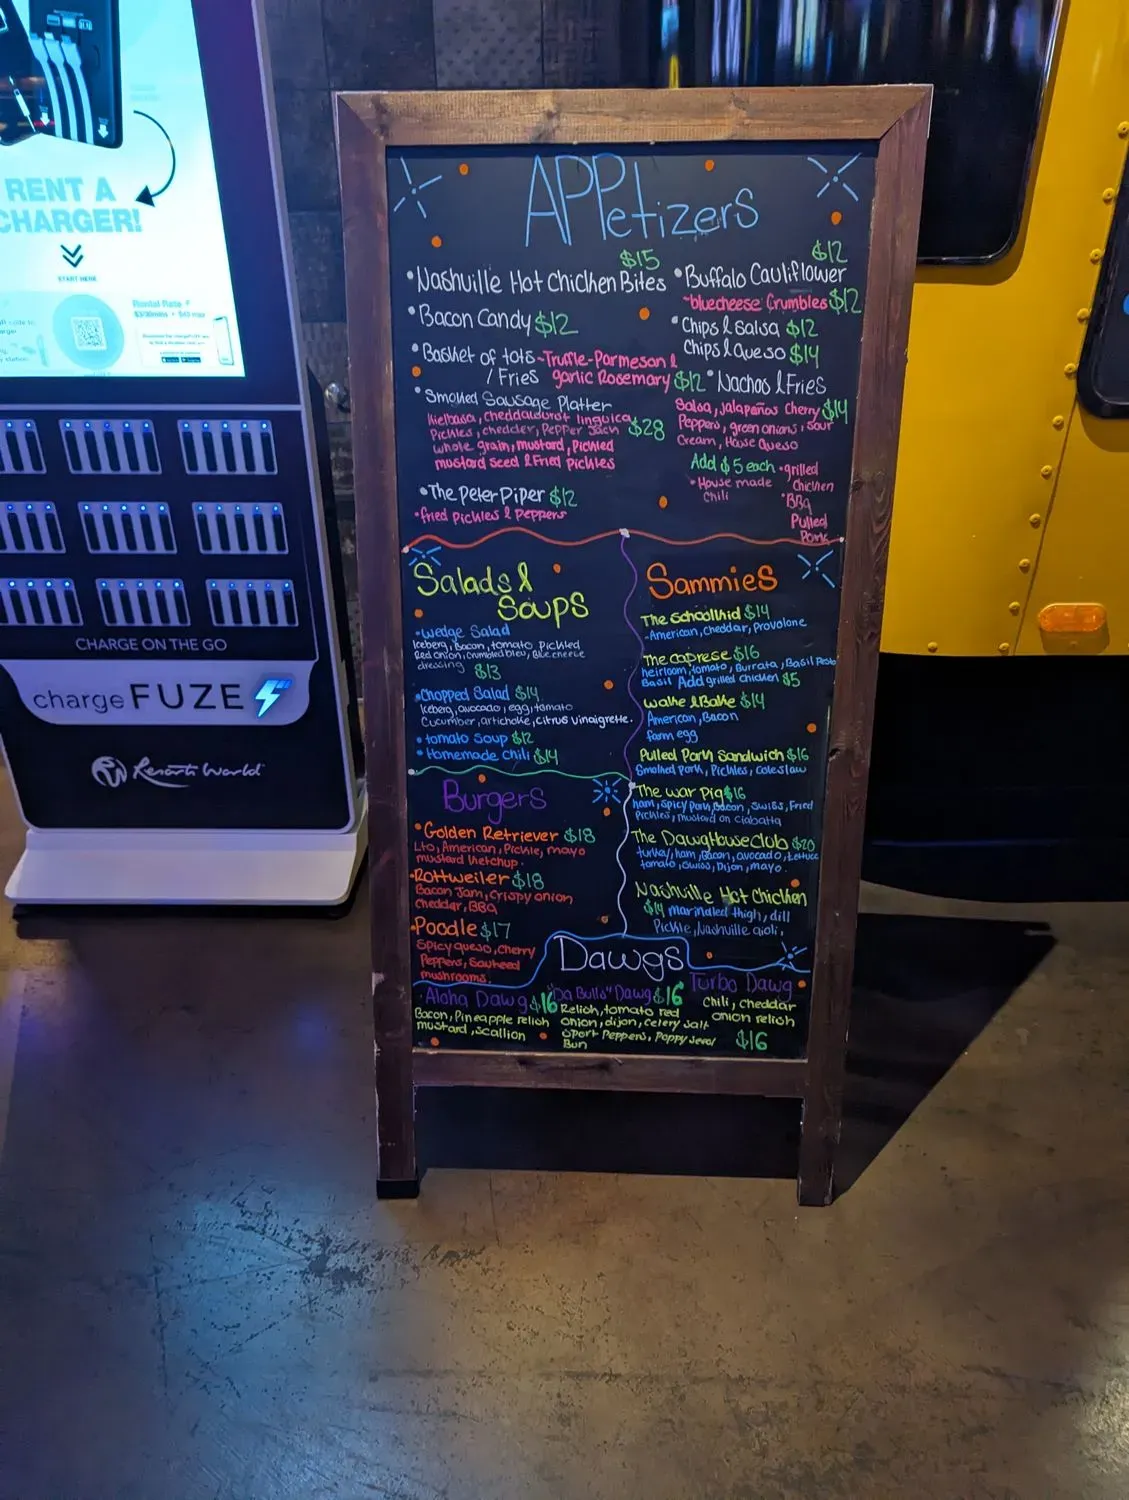 RENT A
CHARGER!
START HERE
Rental Rate
CHARGE ON THE GO
chargeFUZE
Resorts World
APPetizers
$15
• Nashville Hot Chicken Bites
• Bacon Candy $12
• Basket of tots ~Truffle-Parmesan &
/ Fries garlic Rosemary $12
• Smoked Sausage Platter
Kielbasa, cheddarwurst linguica $28
Pickles, chedder, Pepper Jack
whole grain, mustard, Pickled
mustard seed & Fried Pickles
• The Peter Piper $12
• fried Pickles & Peppers
$12
• Buffalo Cauliflower
~bluecheese Crumbles $12
• Chips & Salsa $12
Chips & Queso $14
• Nachos & Fries
Salsa, Jalapeños Cherry $14
Peppers, green onions, sour
Cream, House Queso
Add $5 each • grilled
Chicken
• House made
Chili
• BBQ
Pulled
Pork
Salads &
Soups
• Wedge Salad
Iceberg, Bacon, tomato Pickled
Red onion, crumbled bleu, Bluecheese
dressing $13
• Chopped Salad $14
Iceberg, avocado, egg, tomato
Cucumber, artichoke, citrus vinaigrette.
• tomato Soup $12
• Homemade Chili $14
Sammies
The Schoolkid $14
-American, cheddar, Provolone
The caprese $16
heirloom, tomato, Burrata, Basil Pesto
Basil Add grilled chicken $5
Wake & Bake $14
American, Bacon
farm egg
Pulled Pork Sandwich $16
Smoked Pork, Pickles, coleslaw
The war Pig $16
ham, Spicy Pork, Bacon, Swiss, Fried
Pickles, mustard on Ciabatta
The DawgHouse Club $20
turkey, ham, Bacon, avocado, Lettuce
tomato, Swiss, Dijon, mayo.
Nashville Hot Chicken
$14 marinated thigh, dill
Pickle, Nashville aioli,
Burgers
• Golden Retriever $18
Lto, American, Pickle, mayo
mustard Ketchup.
• Rottweiler $18
Bacon Jam, Crispy onion
Cheddar, BBQ
• Poodle $17
Spicy queso, Cherry
Peppers, Sauteed
mushrooms.
Dawgs
• Aloha Dawg $16
Bacon, Pineapple relish
mustard, scallion
"Da Bulls" Dawg $16
Relish, tomato red
onion, dijon, celery salt
Sport Peppers, Poppy seed
Bun
Turbo Dawg
Chili, cheddar
onion relish
$16